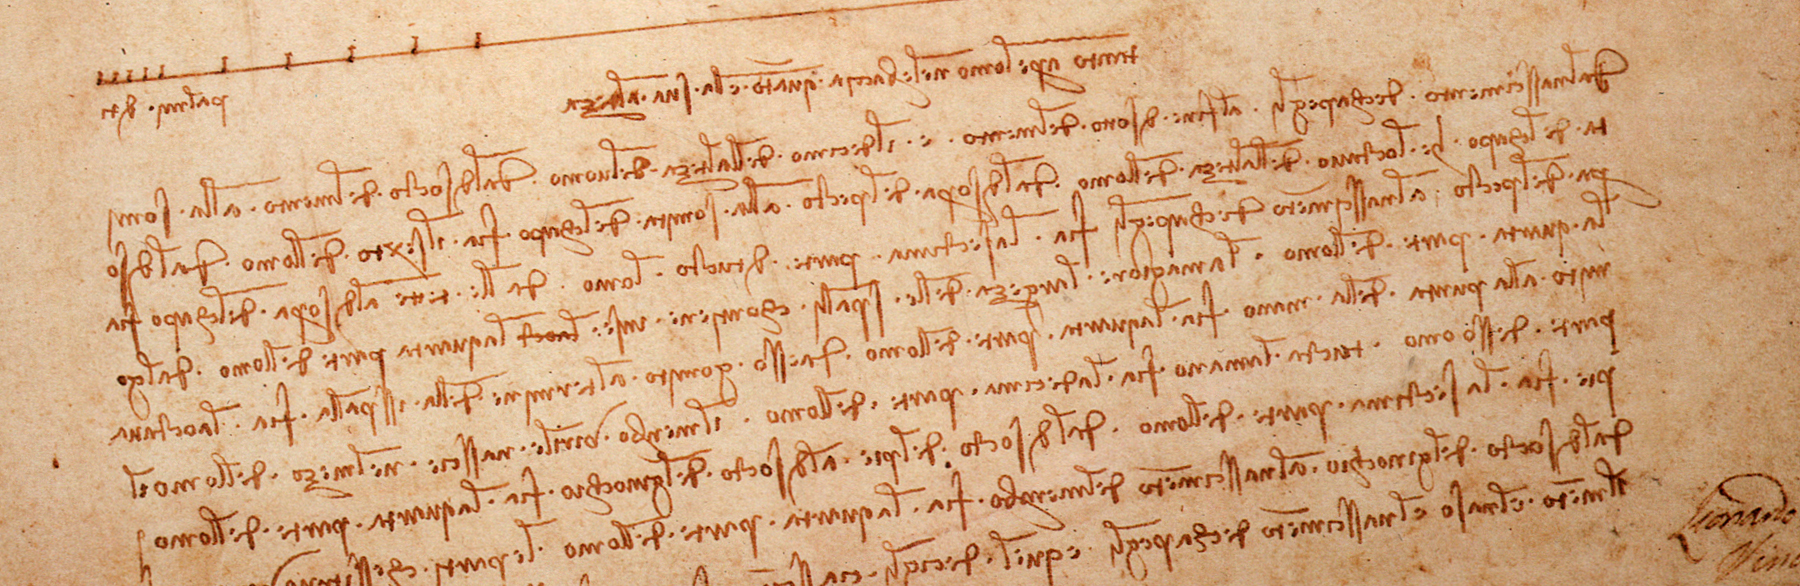 palmi
tanto apre lomo nele braccia · quanto · ella · sua · alteza
dal nasscimento · de chapegli · al fine · di sotto · del mento · e · il decimo · dell alteza · del uomo · dal di socto · del mento · alla · som
ta · del chapo · he · loctavo · dell alteza · dell omo · dal di sopra · del pecto · alla · sommita · del chapo · fia · il sexto · dell omo · dal di so
pra · del pecto · al nasscimento · de chapegli · fia · la settima · parte · di tucto · lomo · dalle · tette · al di sopra · del chapo · fia
la · quarta · parte · dell omo · la magiore · largeza · delle · spalli · chontiene · in se · la oct la quarta · parte · dell omo · dal go
mito · alla · punta · della · mano · fia · la quarta · parte · dell omo · da esso · gomito · al termine · della · isspalla · fia · la octava
parte · desso omo · tucta · la mano · fia · la decima · parte · dell omo · il membro · virile · nasscie · nel mezo · dell omo · il
pie · fia · la · settima · parte · dell omo · dal di socto · del pie · al di socto · del ginochio · fia · la quarta · parte · dell omo
dal di socto · del ginochio · al nasscimento · del membro · fia · la quarta · parte · dell omo · le parti · che ssi
il mento · el naso · el nasscimento · de chapegli · e quel · de cigli · ciasscuno
Leonardo
Vinci